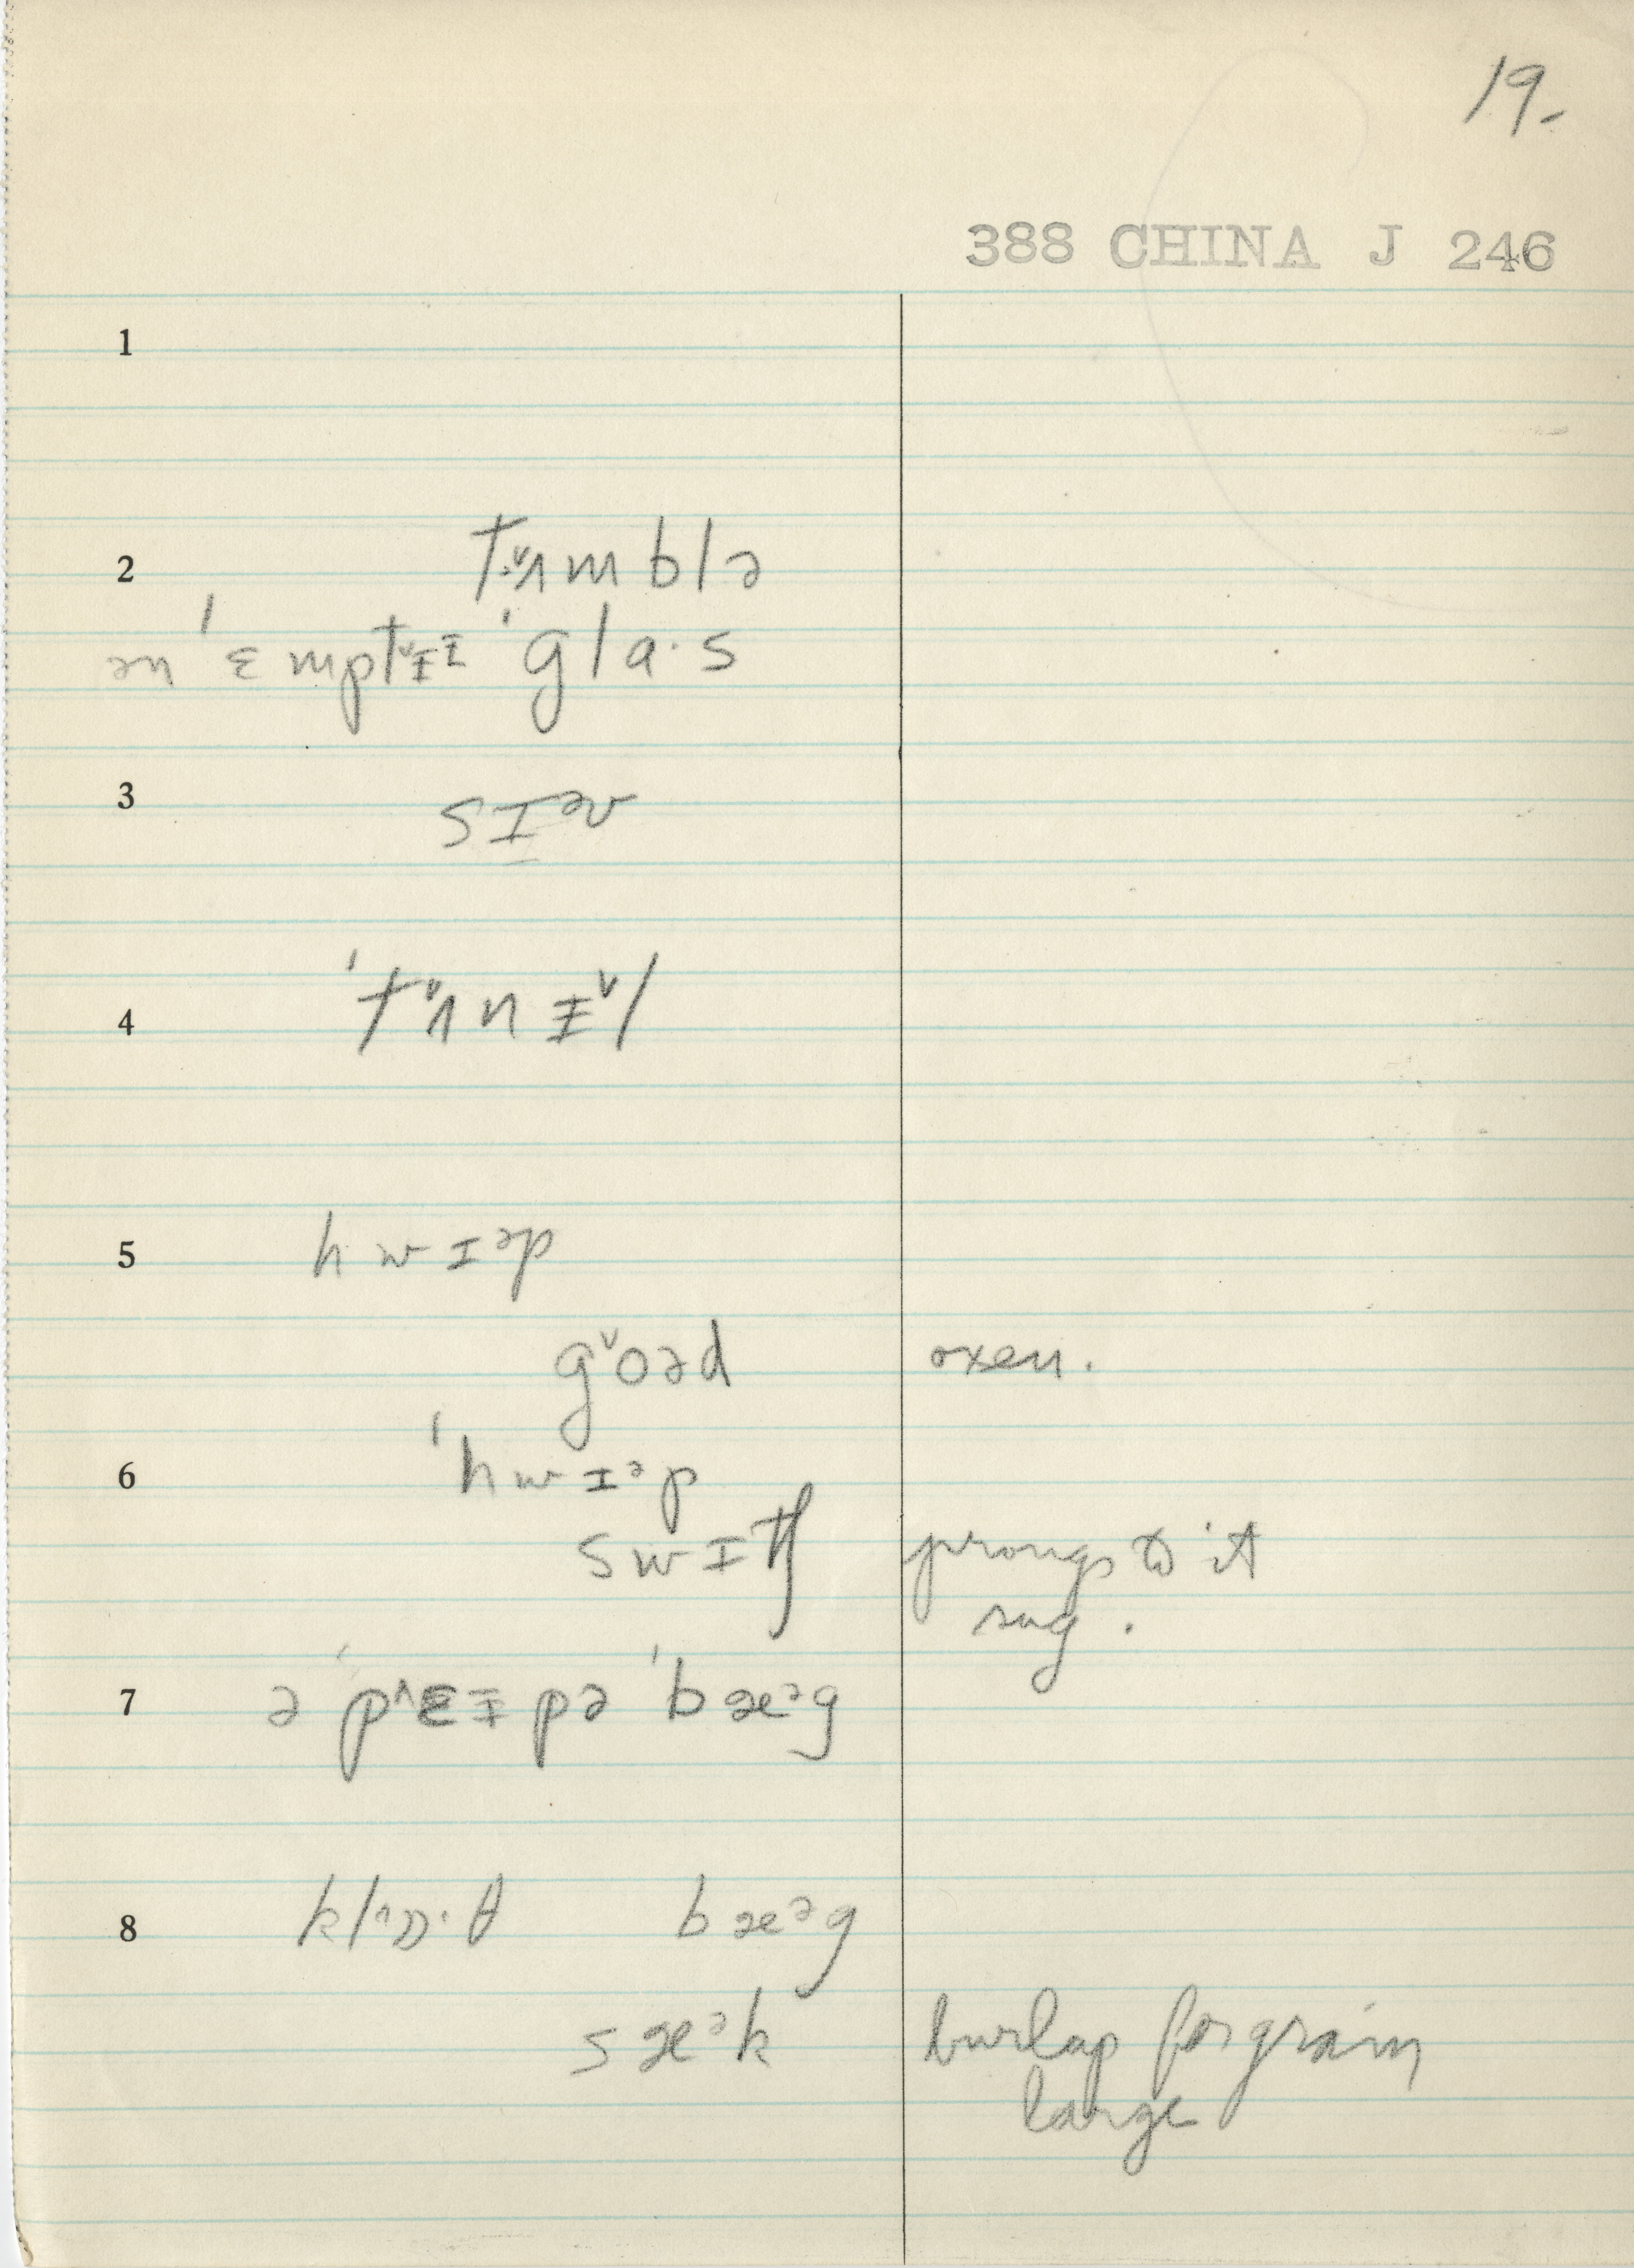 19-
388 CHINA J 246
1
2 tʌ˅mblə
ən ˈɛmptɨ˅ɪ ˈgla·s
3 sɪᵊv
4 ˈtʌ˅nɨ˅l
5 hwɪᵊp
g˅oəd oxen.
6 ˈhwɪᵊp
swɪtʃ prongs to it
7 ə ˈp^ɛɨpə ˈbæᵊg
8 kl^ɒ·θ bæᵊg
sæᵊk burlap for grain
large